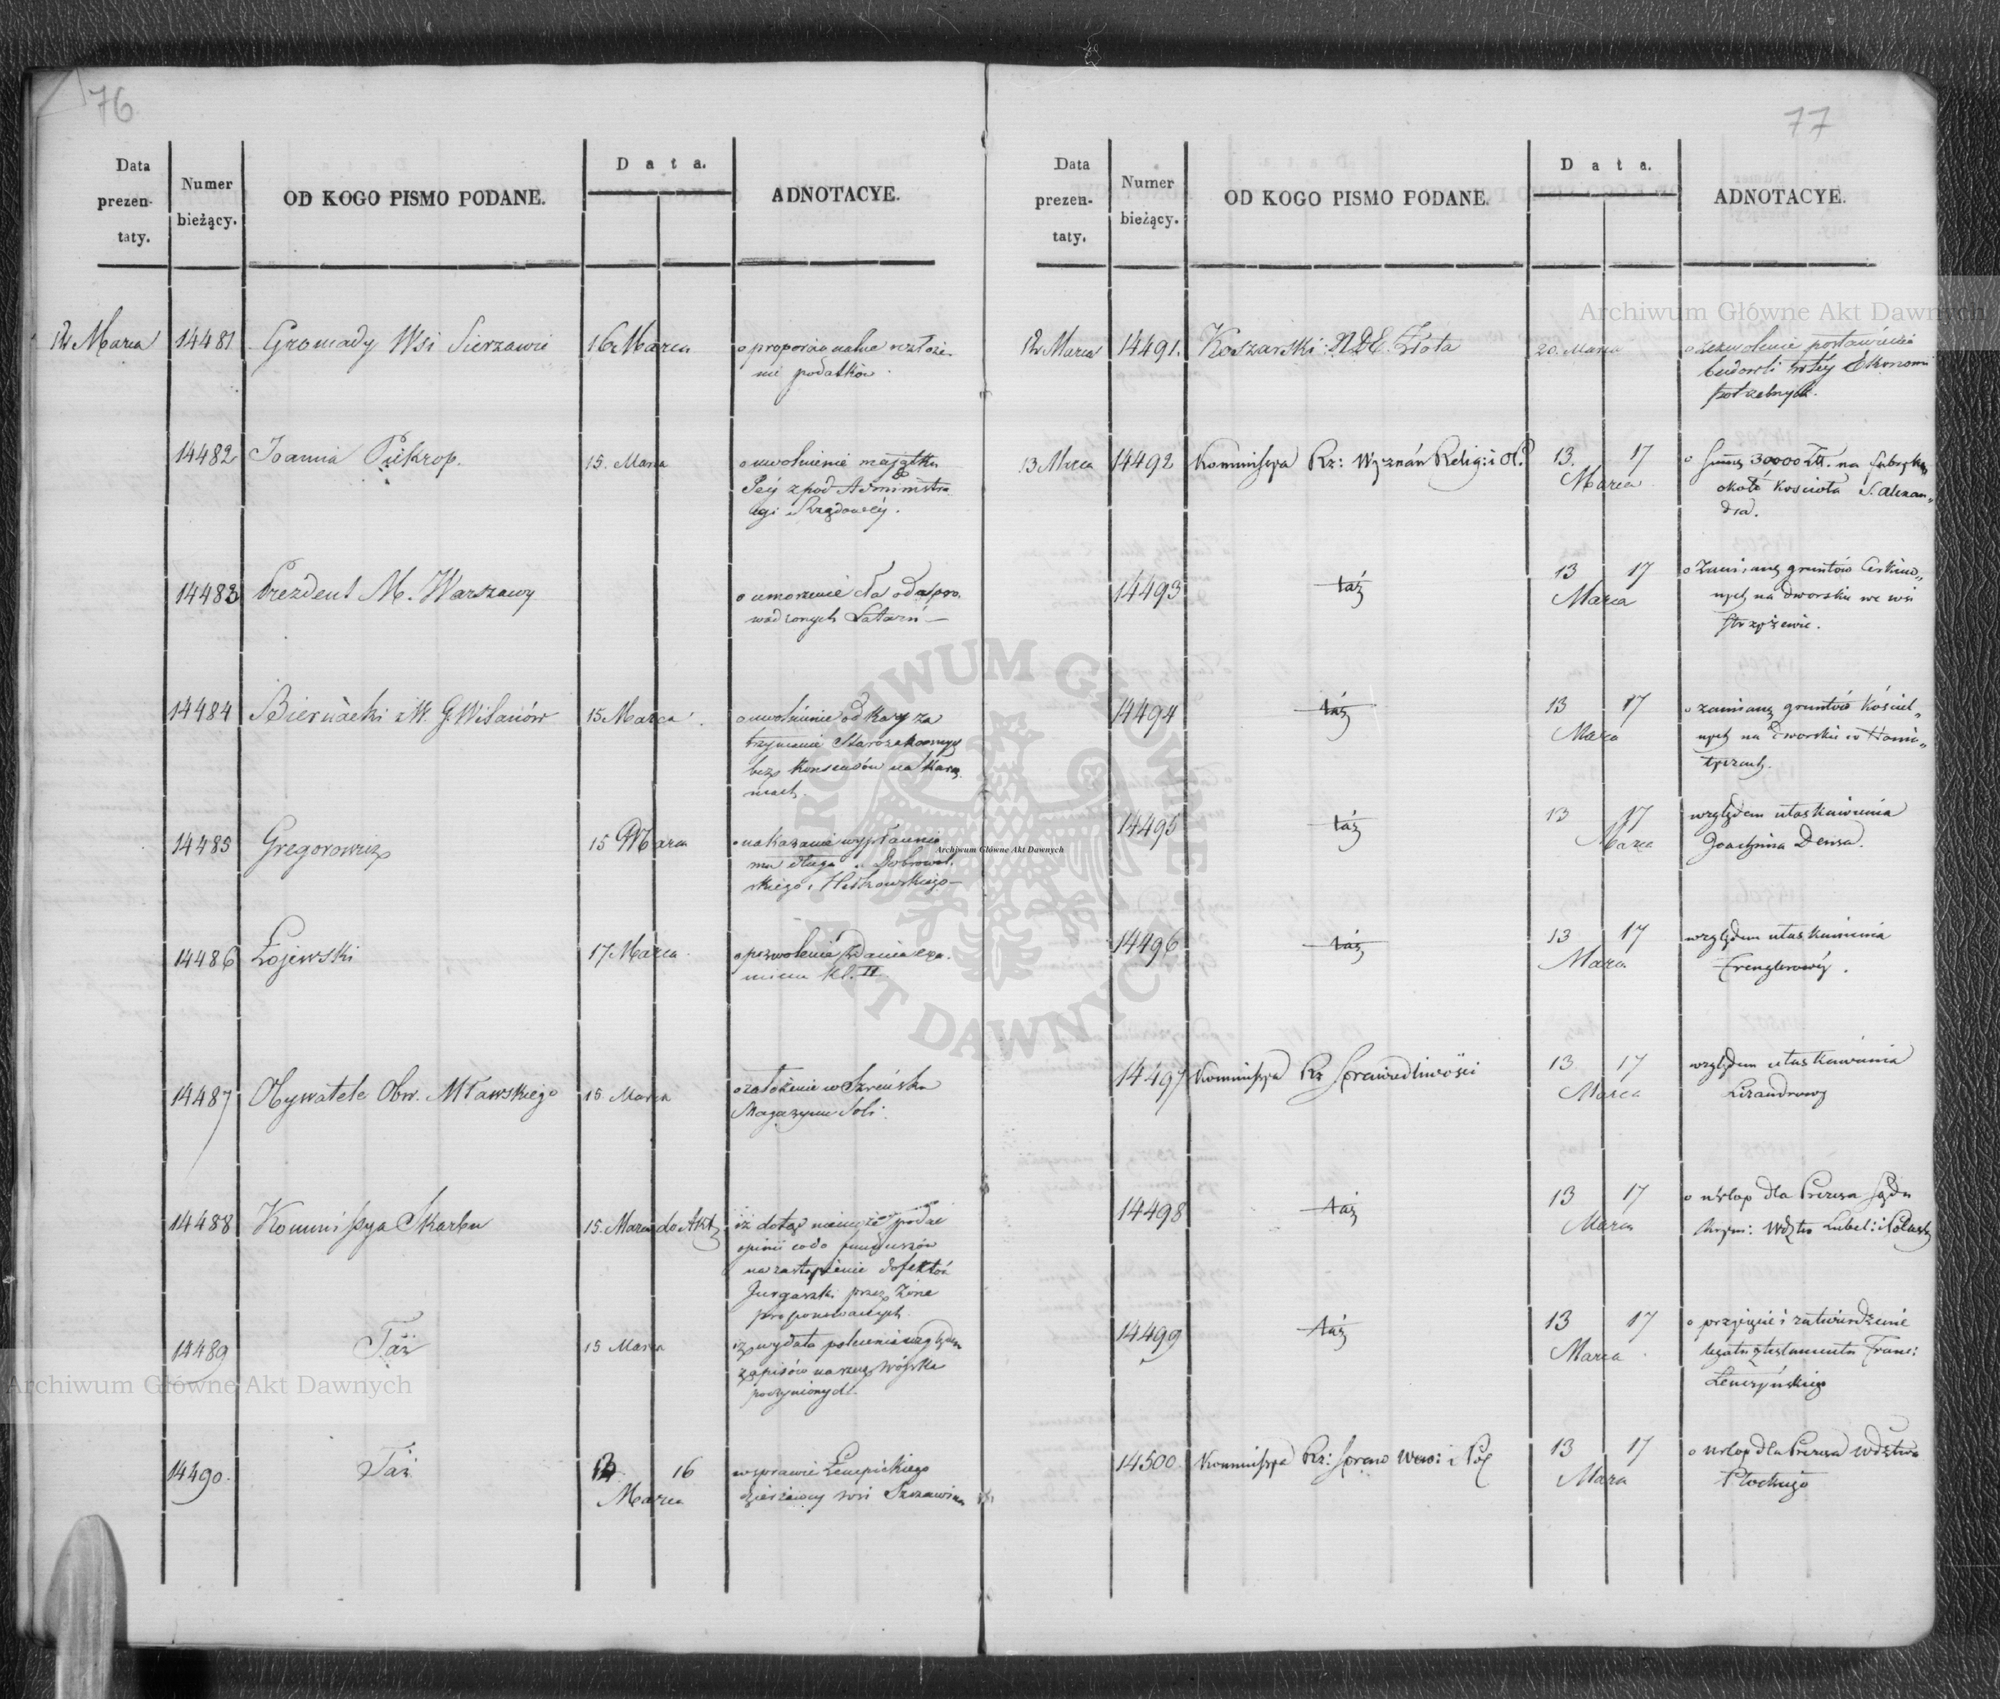 76
Data
prezen-
taty.
Numer
bieżący.
OD KOGO PISMO PODANE.
Data.
ADNOTACYE.
12 Marca 14481 Gromady Wsi Sierzawi 16 Marca o proporcionalne rozłoże-
nie podatków.
14482 Joanna Piekrop. 15. Marca o uwolnienie majątku
Jéj z pod Administra
cyi Rządowéj.
14483 Prezydent M. Warszawy o umorzenie
wadzonych Latarń —
14484 Biernacki z W. G. Wilanów 15 Marca o uwolnienie od kary za
trzymanie Starozakonnego
bez Konsensów na Karcz
mach.
14485 Gregorowicz 15 Marca o nakazanie wypłacenia
mu długu Dobrowol-
skiego i —
14486 Łojewski 17 Marca o pozwolenie zdania exa-
minu kl. II
14487 Obywatele Obw. Mławskiego 15. Marca o założenie w Szreńsku
Magazynu Soli.
14488 Kommissya Skarbu 15. Marca do Akt iż dotąd niemoże podać
opinii co do funduszów
na zastąpienie defektów
Jurgaszki przez żonę
proponowanych.
14489 Taż 15 Marca iż wydała polecenia względem
zapisów na rzecz wójska
poczynionych.
14490. Taż 16
Marca
w sprawie Łempickiego
dzierżawcy wsi Szczawina
77
Data
prezen-
taty.
Numer
bieżący.
OD KOGO PISMO PODANE.
Data.
ADNOTACYE.
12 Marca 14491. Koszarski N.D.E. Złota 20. Marca o zezwolenie postawienia
budowli tutéy Ekonomii
potrzebnych.
13 Marca 14492 Kommissya Rz: Wyznań Relig: i O.P. 13. 17
Marca
o summę 30000 Zł. na fabrykę
około Kościoła S. Alexan„
dra.
14493 táż 13 17
Marca
o zamianę gruntów
nych na dworskie we wsi
Strzyżewie.
14494 táż 13 17
Marca
o zamianę gruntów kościel„
nych na dworskie w
14495 táż 13 17
Marca
względem ułaskawienia
Joachima Denisa.
14496 táż 13 17
Marca
względem ułaskawienia
Frenglerowéj.
14497 Kommissya Rz Sprawiedliwości 13 17
Marca
względem ułaskawienia
Lizandrowéj
14498 táż 13 17
Marca
o urlop dla Prezesa Sądu
Krym: Wdztw Lubel: i Podlask
14499 táż 13 17
Marca
o przyjęcie i zatwierdzenie
legatu z testamentu Franc:
Lenczyńskiego
14500. Kommissya Rz: Spraw Wew: i Pol 13 17
Marca
o urlop dla Prezesa Wdztwa
Płockiego
Archiwum Główne Akt Dawnych
Archiwum Główne Akt Dawnych
Archiwum Główne Akt Dawnych
ARCHIWUM GŁÓWNE AKT DAWNYCH